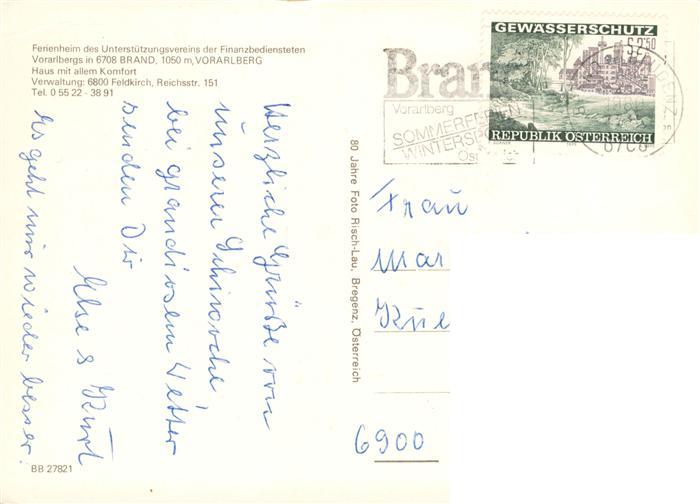 Ferienheim des Unterstützungsvereins der Finanzbediensteten
Vorarlbergs in 6708 BRAND, 1050 m, VORARLBERG
Haus mit allem Komfort
Verwaltung: 6800 Feldkirch, Reichsstr. 151
Tel. 0 55 22 - 38 91
Herzliche Grüße von
unserer Schiwoche
bei grandiosem Wetter
senden Dir
Else & Kurt
Es geht mir wieder besser.
BB 27821
80 Jahre Foto Risch-Lau, Bregenz, Österreich
Bran
Vorarlberg
SOMMERFERIEN
WINTERSP
Öst
GEWÄSSERSCHUTZ
S 2·50
REPUBLIK ÖSTERREICH
6708
Frau
Mar
Kue
6900